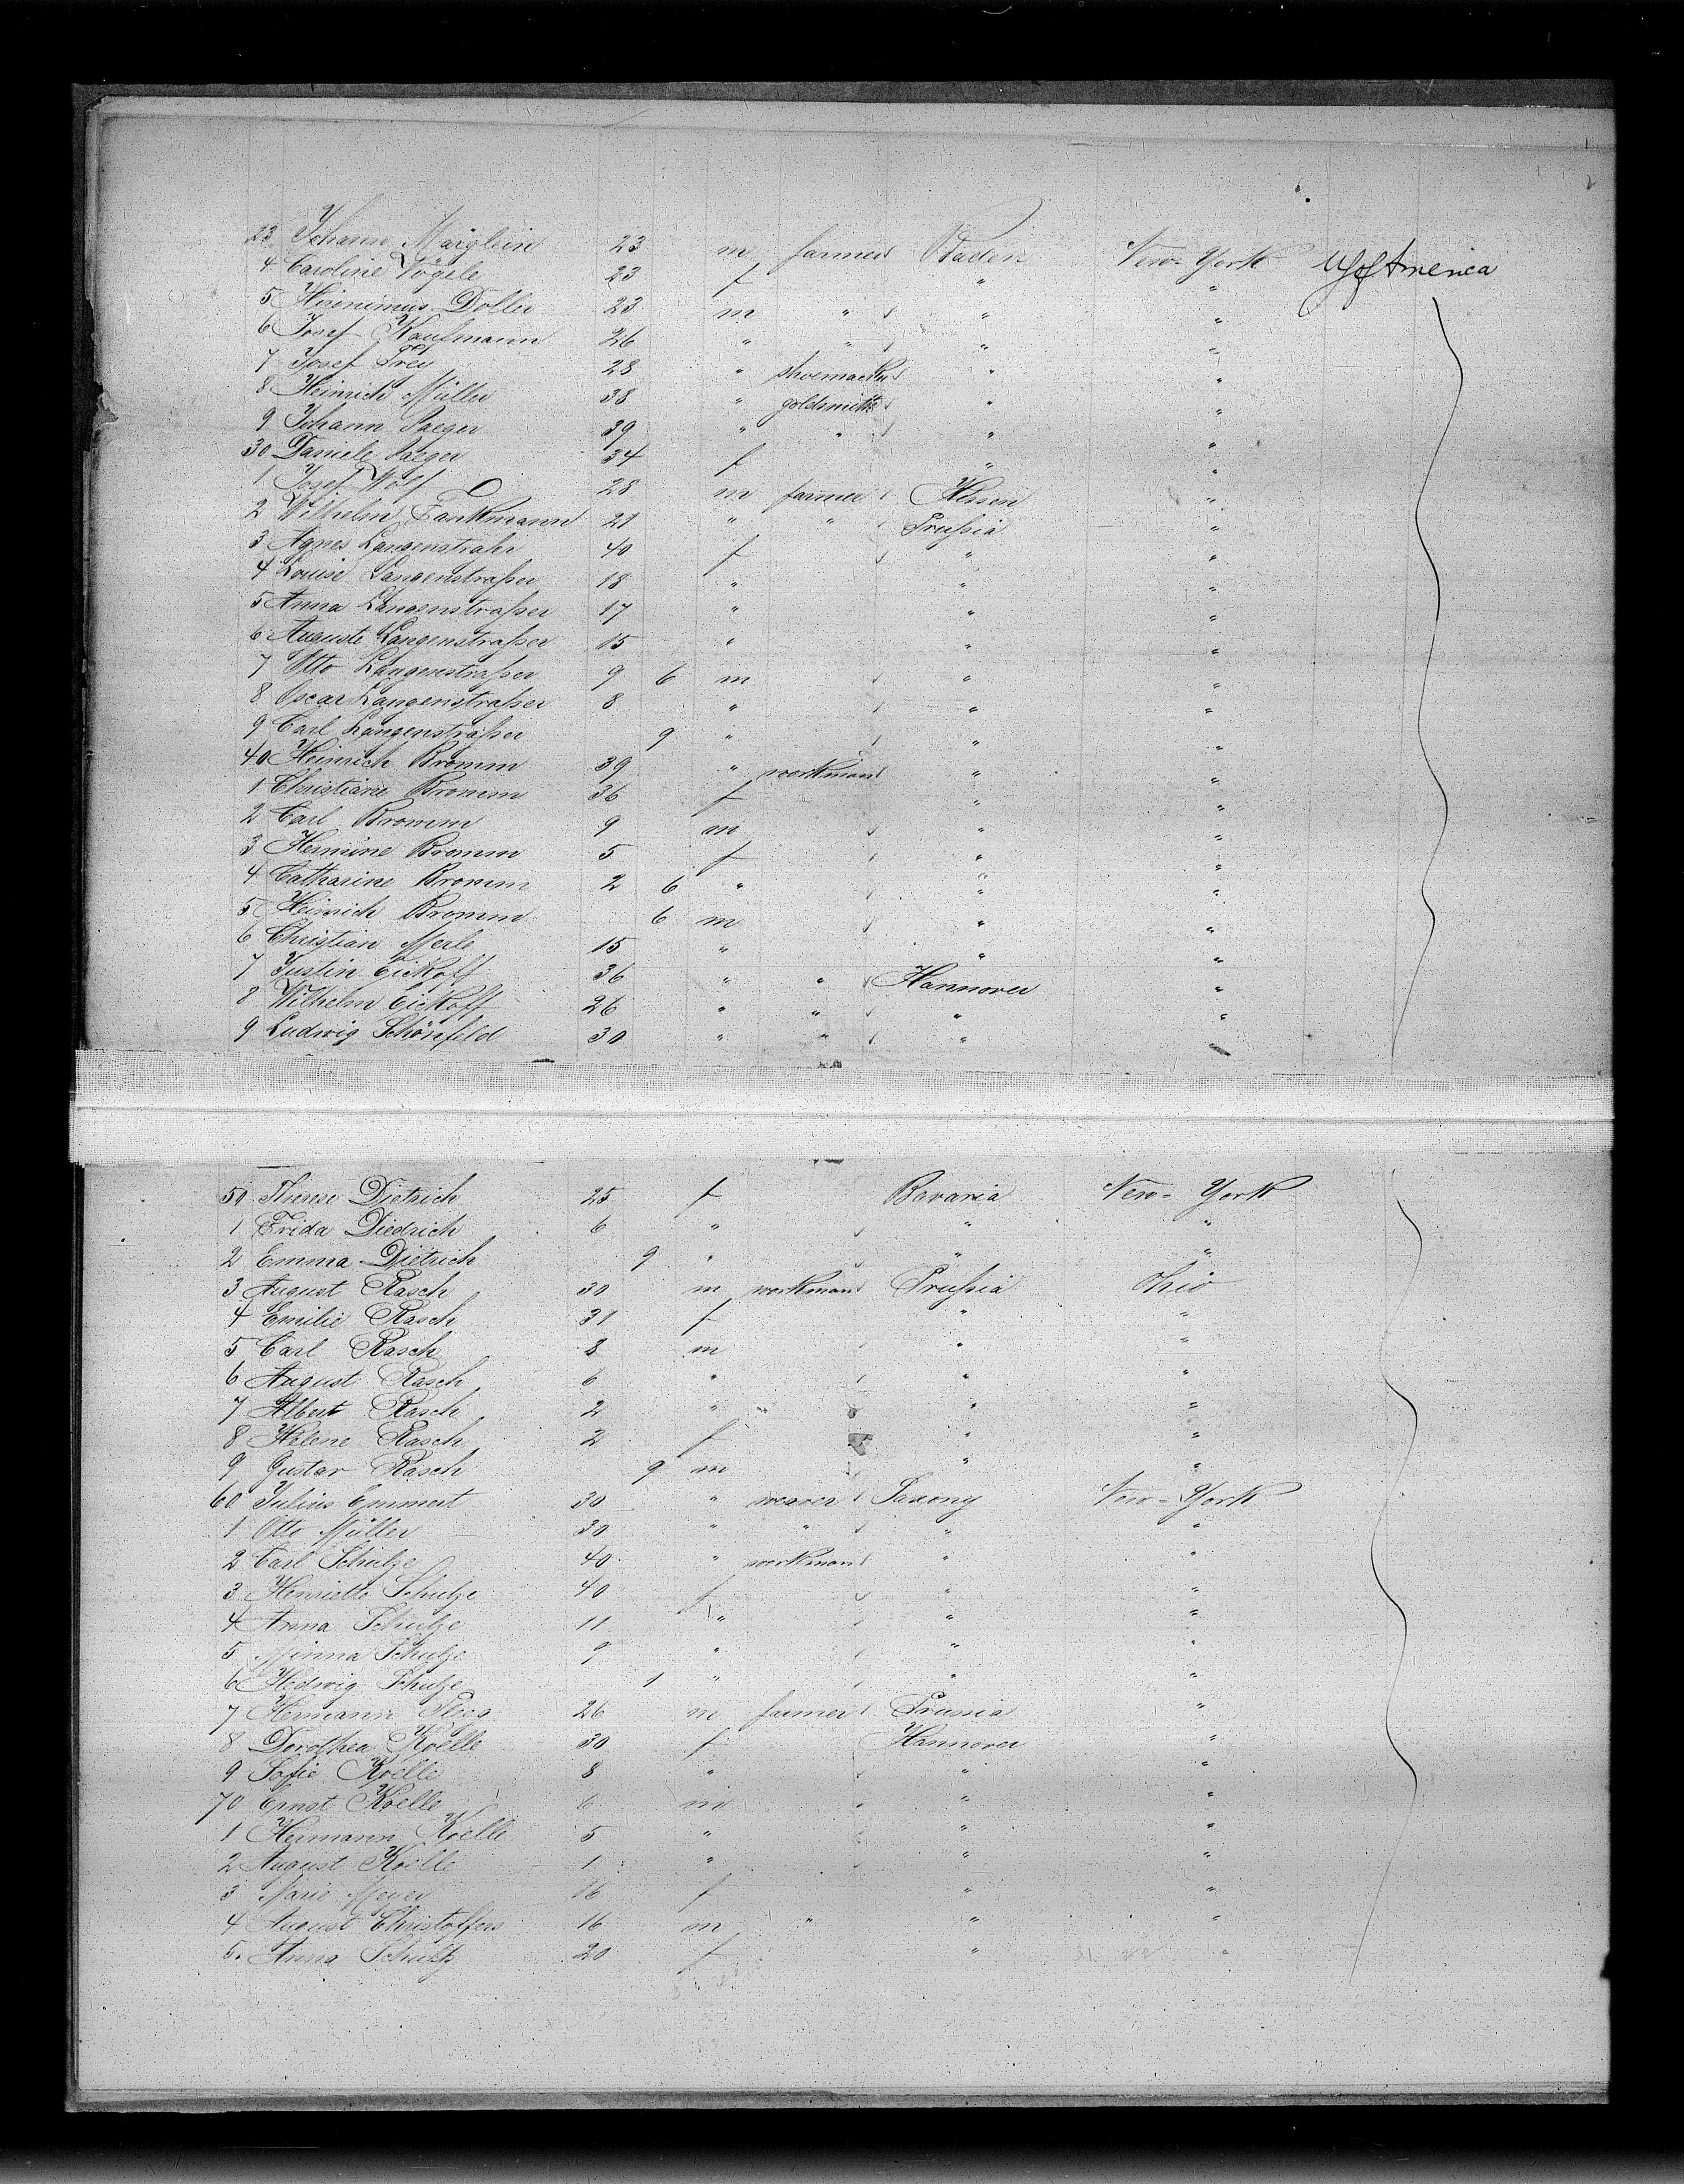 23 Johann Märglein 23 m farmer Baden New-York US of America
4 Caroline Vögele 23 f " "
5 Hieronimus Doller 23 m " " "
6 Josef Kaufmann 26 " " " "
7 Josef Frey 28 " shoemacker " "
8 Heinrich Müller 38 " goldsmith " "
9 Johann Jaeger 39 " " " "
30 Daniele Jaeger 34 f " "
1 Josef Wolf 28 m farmer Hessen "
2 Wilhelm Fankmann 21 " " Prussia "
3 Agnes Langenstraßer 40 f " "
4 Louise Langenstraßer 18 " " "
5 Anna Langenstraßer 17 " " "
6 Auguste Langenstraßer 15 " " "
7 Otto Langenstraßer 9 6 m " "
8 Oscar Langenstraßer 8 " " "
9 Carl Langenstraßer 9 " " "
40 Heinrich Bromm 39 " workman " "
1 Christiane Bromm 36 f " "
2 Carl Bromm 9 m " "
3 Hermine Bromm 5 f " "
4 Catharine Bromm 2 6 " " "
5 Heinrich Bromm 6 m " "
6 Christian Merle 15 " " "
7 Justin Eickoff 36 " " Hannover "
8 Wilhelm Eickoff 26 " " " "
9 Ludwig Schönfeld 30 " " " "
50 Therese Dietrich 25 f Bavaria New-York
1 Frida Diedrich 6 " " "
2 Emma Dietrich 9 " " "
3 August Rasch 30 m workman Prussia Ohio
4 Emilie Rasch 31 f " "
5 Carl Rasch 8 m " "
6 August Rasch 6 " " "
7 Albert Rasch 2 " " "
8 Helene Rasch 2 f " "
9 Gustav Rasch 9 m " "
60 Julius Emmert 30 " weaver Saxony New-York
1 Otto Müller 30 " " " "
2 Carl Schulze 40 " workman " "
3 Henriette Schulze 40 f " "
4 Anna Schulze 11 " " "
5 Minna Schulze 9 " " "
6 Hedwig Schulze 1 " " "
7 Hermann 26 m farmer Prussia "
8 Dorothea Koelle 30 f Hannover "
9 Sofie Koelle 8 " " "
70 Ernst Koelle 6 m " "
1 Hermann Koelle 5 " " "
2 August Koelle 1 " " "
3 Marie Meyer 16 f " "
4 August Christoffers 16 m " " "
5 Anna Schultz 20 f " "